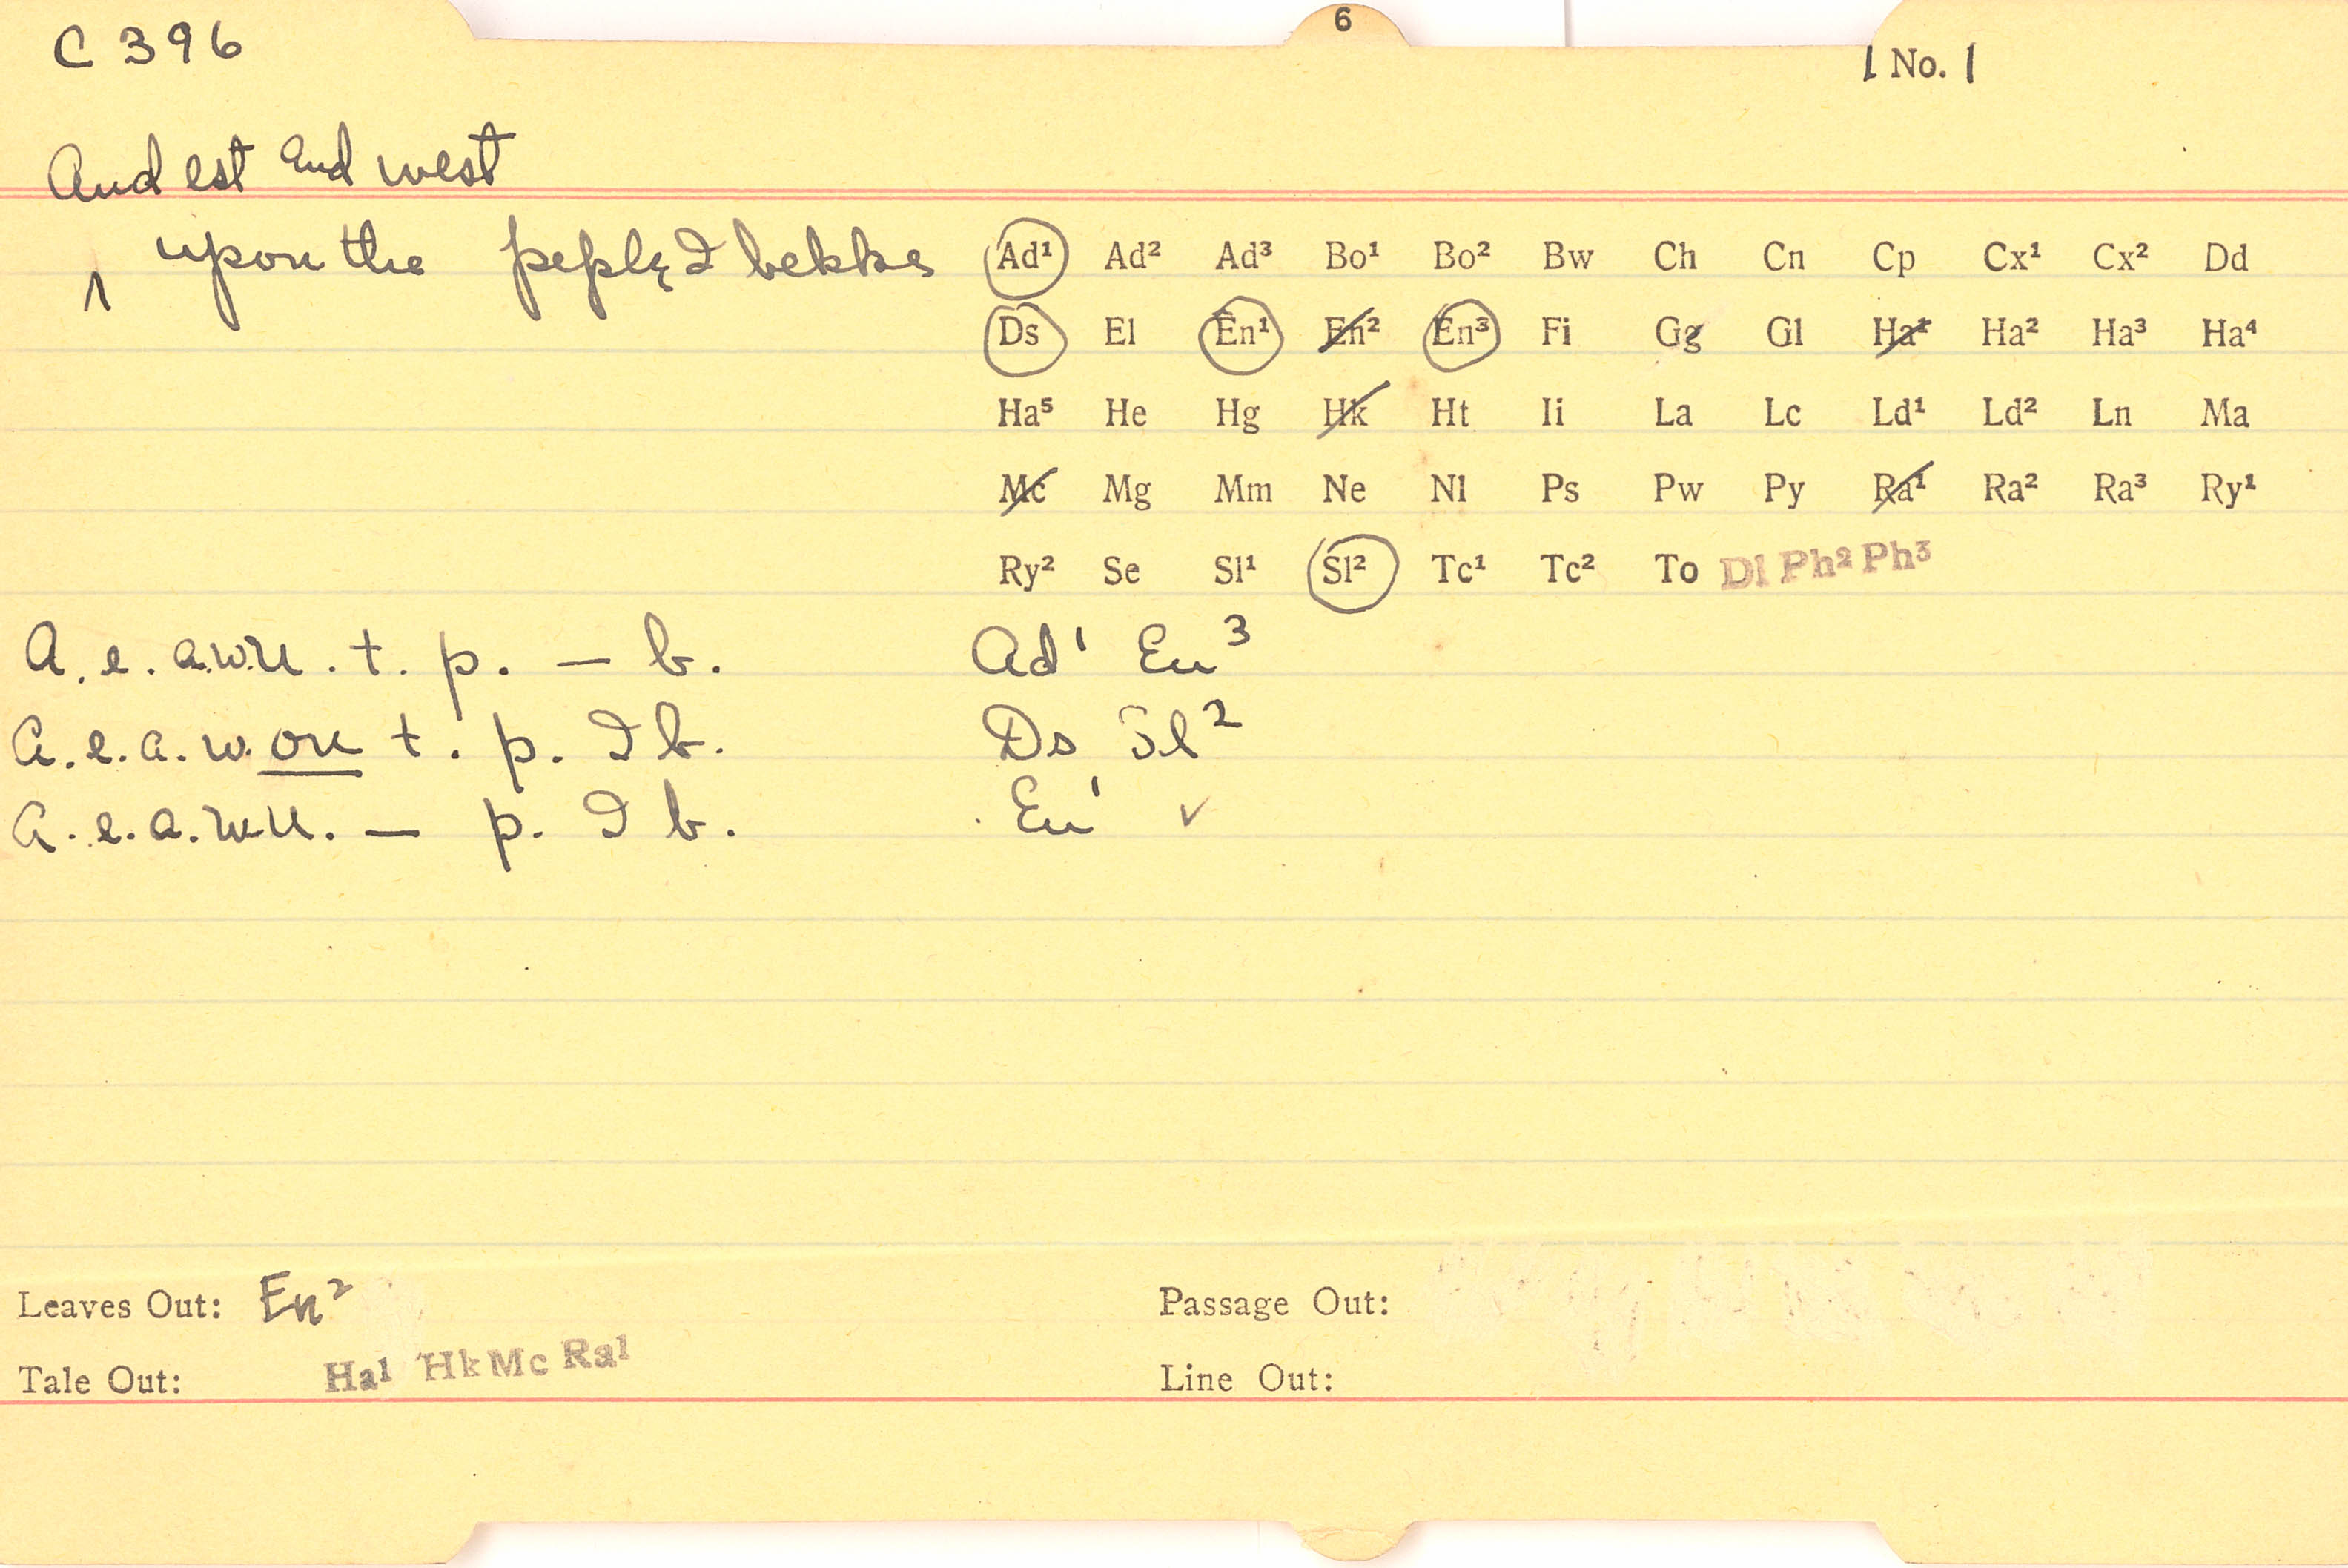 6
C 396
1 No. 1
And est and west
^ upon the peple I bekke
Ad¹ Ad² Ad³ Bo¹ Bo² Bw Ch Cn Cp Cx¹ Cx² Dd
Ds El En¹ En² En³ Fi Gg Gl Ha¹ Ha² Ha³ Ha⁴
Ha⁵ He Hg Hk Ht Ii La Lc Ld¹ Ld² Ln Ma
Mc Mg Mm Ne Nl Ps Pw Py Ra¹ Ra² Ra³ Ry¹
Ry² Se Sl¹ Sl² Tc¹ Tc² To Dl Ph² Ph³
A. e. a. w. u. t. p. — b. Ad¹ En³
A. e. a. w. on t. p. I b. Ds Sl²
A. e. a. w. u. — p. I b. En¹ ✓
Leaves Out: En² Passage Out:
Tale Out: Ha¹ Hk Mc Ra¹ Line Out: